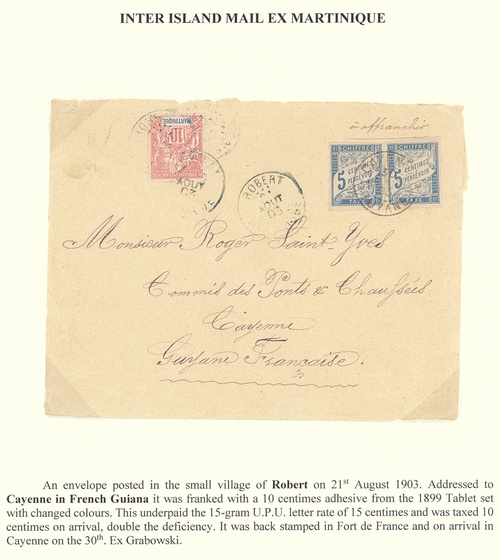 INTER ISLAND MAIL EX MARTINIQUE
à affranchir
MARTINIQUE
10
CHIFFRE CHIFFRE
5 CENTIMES 5 CENTIMES
À PERCEVOIR À PERCEVOIR
TAXE TAXE
ROBERT
21
AOUT
03
AOUT
03
Monsieur Roger Saint-Yves
Commis des Ponts & Chaussées
Cayenne
Guyane Française.
An envelope posted in the small village of Robert on 21st August 1903. Addressed to
Cayenne in French Guiana it was franked with a 10 centimes adhesive from the 1899 Tablet set
with changed colours. This underpaid the 15-gram U.P.U. letter rate of 15 centimes and was taxed 10
centimes on arrival, double the deficiency. It was back stamped in Fort de France and on arrival in
Cayenne on the 30th. Ex Grabowski.